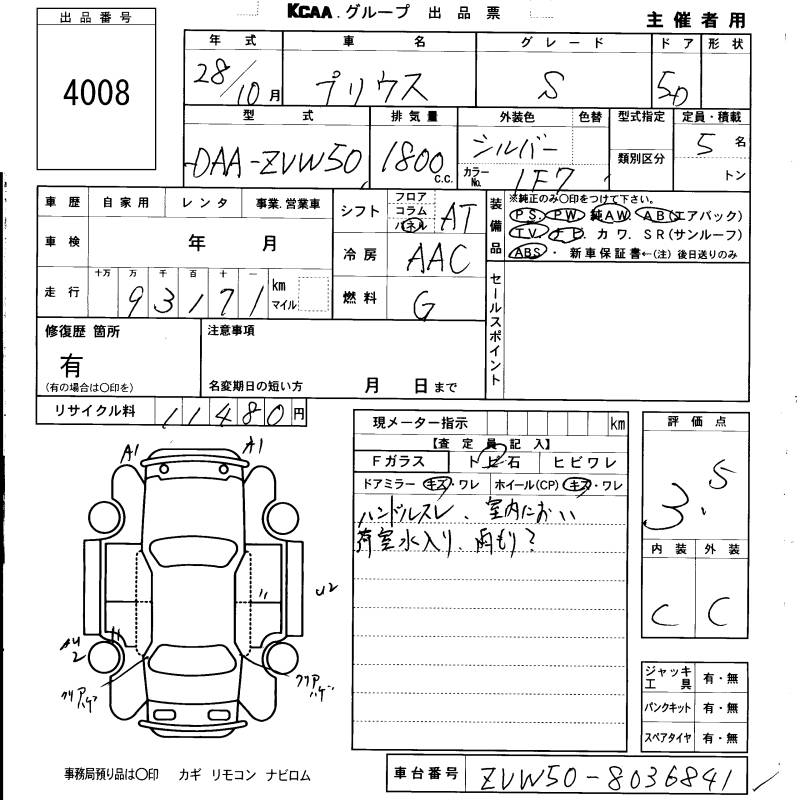 KCAA グループ 出品票
主催者用
出品番号
4008
年式 車名 グレード ドア 形状
28/10月 プリウス S 5D
型式 排気量 外装色 色替 型式指定 定員・積載
DAA-ZVW50 1800 c.c. シルバー 5 名
カラーNo. 1F7 類別区分 トン
車歴 自家用 レンタ 事業.営業車
車検 年 月
走行 十万 万 千 百 十 一
93171 km マイル
シフト フロア コラム パネル AT
冷房 AAC
燃料 G
装備品 ※純正のみ〇印をつけて下さい。
P.S. PW 純AW AB(エアバック)
T.V. ナビ. カワ. SR(サンルーフ)
ABS・ 新車保証書←(注)後日送りのみ
セールスポイント
修復歴 箇所
有
(有の場合は〇印を)
注意事項
名変期日の短い方 月 日まで
リサイクル料 11480円
現メーター指示 km
【査定員記入】
Fガラス トビ石 ヒビワレ
ドアミラー キズ・ワレ ホイール(CP) キズ・ワレ
ハンドルスレ、室内におい
荷室水入り、雨もり?
評価点
3.5
内装 外装
C C
A1 A1
U2
2
クリアハゲ
クリアハゲ
ジャッキ工具 有・無
パンクキット 有・無
スペアタイヤ 有・無
事務局預り品は〇印 カギ リモコン ナビロム
車台番号 ZVW50-8036841